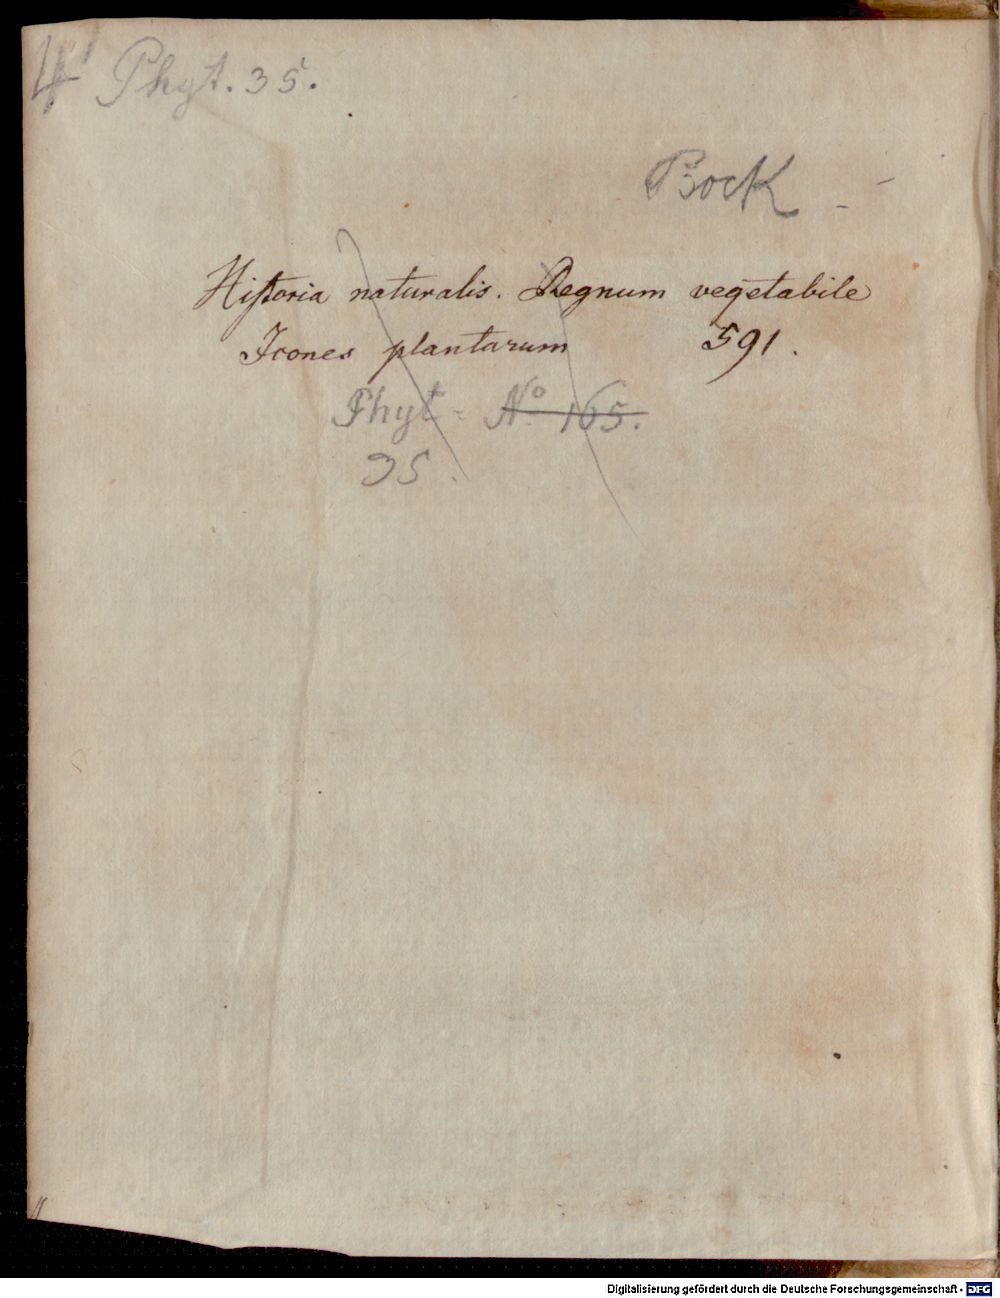 4° Phyt. 35.
Bock
Historia naturalis. Regnum vegetabile
Icones plantarum 591.
Phyt - No 165.
35.
Digitalisierung gefördert durch die Deutsche Forschungsgemeinschaft - DFG